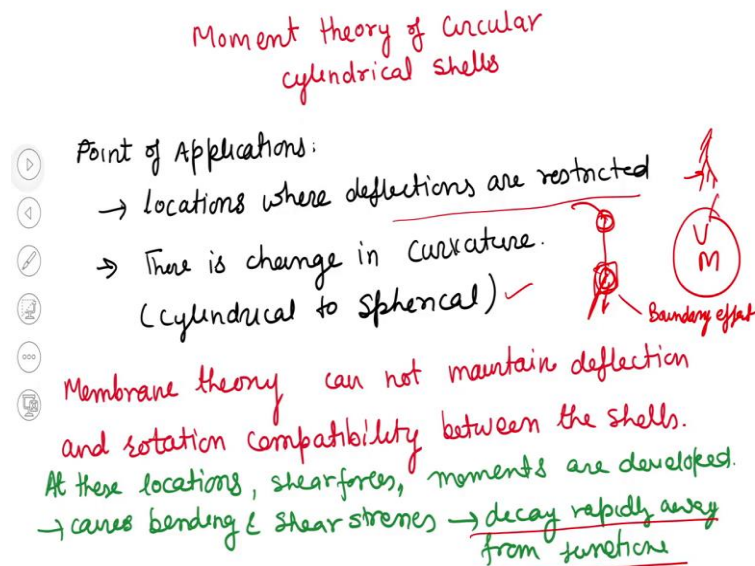 Moment theory of Circular
cylindrical shells
Point of Applications:
→ locations where deflections are restricted
→ There is change in curvature.
(cylindrical to spherical) ✓
U
M
Boundary effect
Membrane theory can not maintain deflection
and rotation compatibility between the shells.
At these locations, shear forces, moments are developed.
→ causes bending & shear stresses → decay rapidly away
from junctions